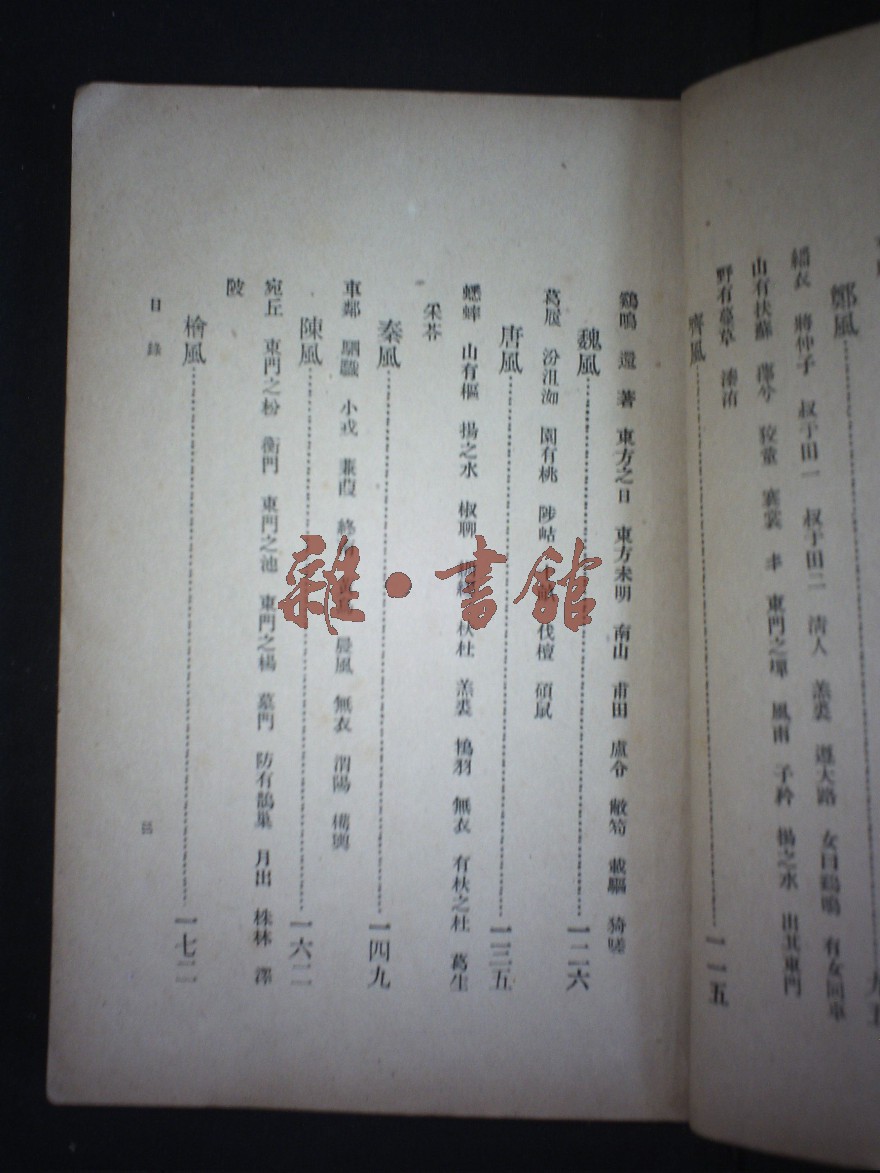 鄭風
緇衣 將仲子 叔于田一 叔于田二 清人 羔裘 遵大路 女曰鷄鳴 有女同車
山有扶蘇 蘀兮 狡童 褰裳 丰 東門之墠 風雨 子衿 揚之水 出其東門
野有蔓草 溱洧
齊風……一一五
鷄鳴 還 著 東方之日 東方未明 南山 甫田 盧令 敝笱 載驅 猗嗟
魏風……一二六
葛屨 汾沮洳 園有桃 陟岵 伐檀 碩鼠
唐風……一三五
蟋蟀 山有樞 揚之水 椒聊 杕杜 羔裘 鴇羽 無衣 有杕之杜 葛生
采苓
秦風……一四九
車鄰 駟驖 小戎 蒹葭 終南 晨風 無衣 渭陽 權輿
陳風……一六二
宛丘 東門之枌 衡門 東門之池 東門之楊 墓門 防有鵲巢 月出 株林 澤
陂
檜風……一七二
目錄
三
雜·書館